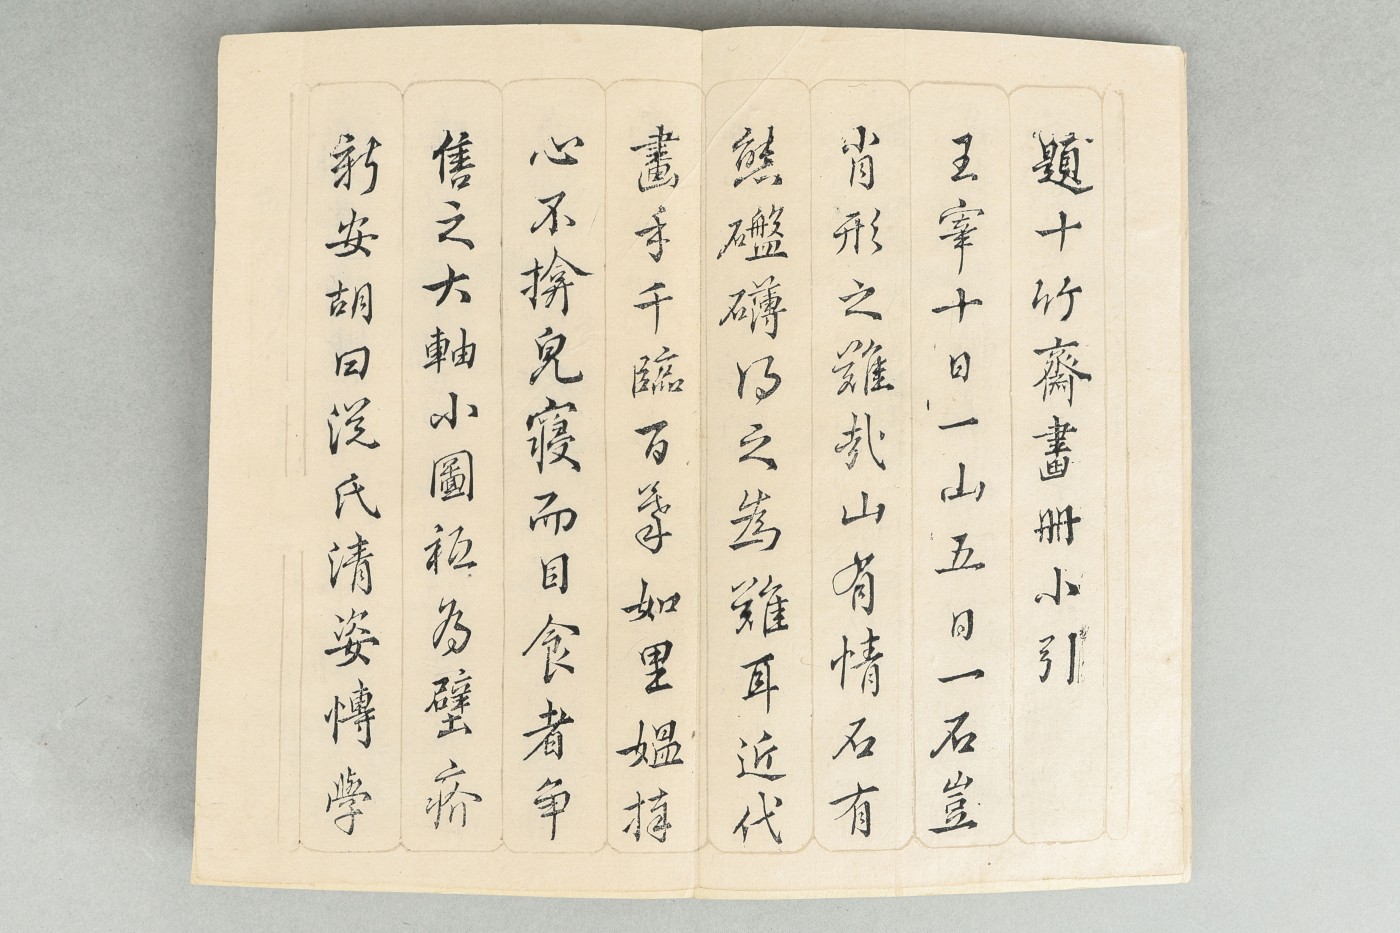 題十竹齋畫冊小引
王宰十日一山五日一石豈
肖形之難哉山有情石有
態盤礴得之為難耳近代
畫手千臨百摹如里媼捧
心不揜皃寢而目食者爭
售之大軸小圖秪為壁疥
新安胡曰從氏清姿愽學